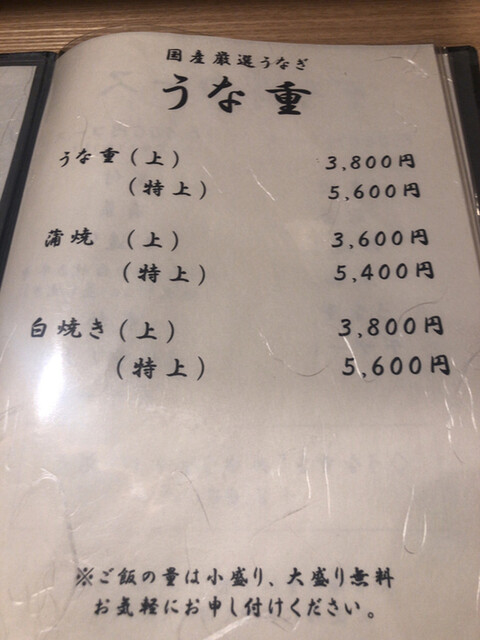 国産厳選うなぎ
うな重
うな重(上) 3,800円
(特上) 5,600円
蒲焼(上) 3,600円
(特上) 5,400円
白焼き(上) 3,800円
(特上) 5,600円
※ご飯の量は小盛り、大盛り無料
お気軽にお申し付けください。